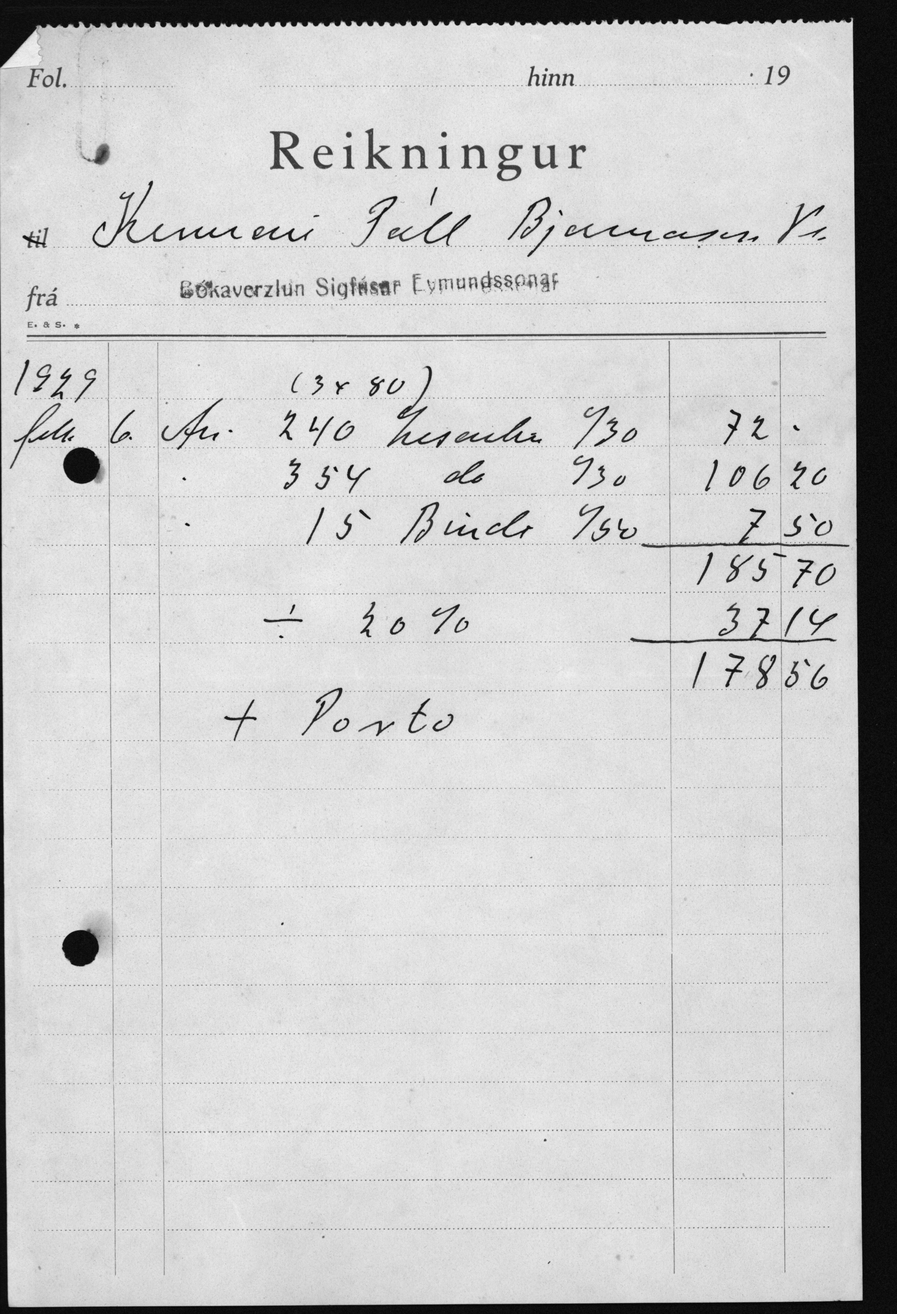 Fol. hinn 19
Reikningur
til Kennari Páll Bjarnason Ve.
frá Bókaverzlun Sigfúsar Eymundssonar
E. & S.
1929 (3 x 80)
febr. 6. An. 240 á/30 72 .
. 354 do á/30 106 20
. 15 Bindi á/50 7 50
185 70
÷ 20 % 37 14
178 56
+ Porto